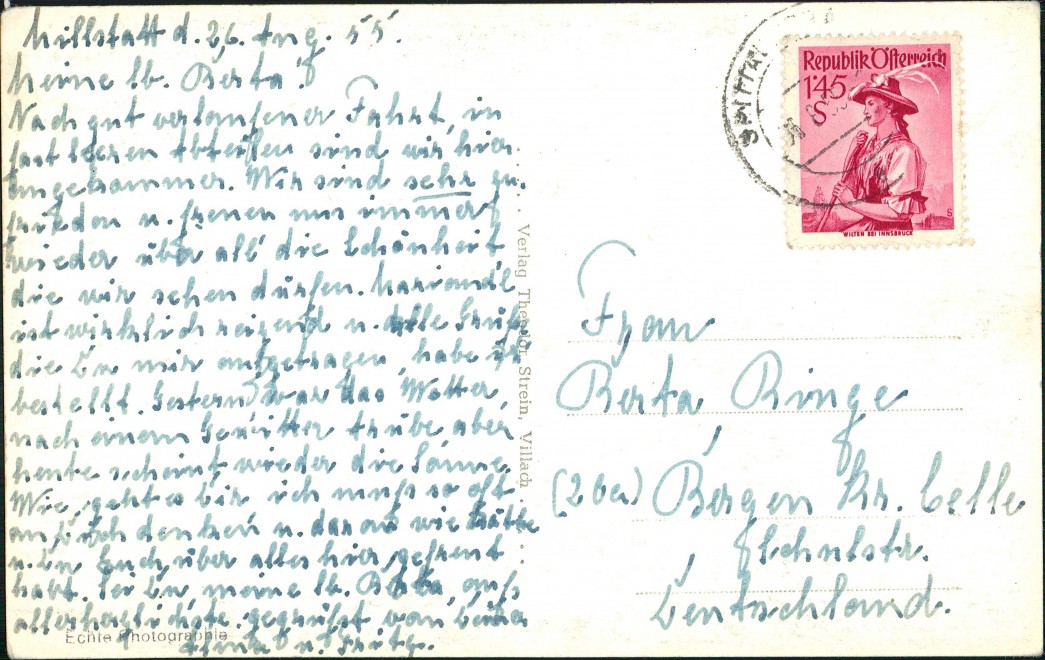 Millstatt d. 26. Aug. 55.
Meine lb. Berta!
Nach gut verlaufener Fahrt, in
fast leeren Abteilen sind wir hier
angekommen. Wir sind sehr zu-
frieden u. freuen uns immer
wieder über all' die Schönheit,
die wir sehen dürfen. Mariandl
ist wirklich reizend u. alle Grüße,
die Du mir aufgetragen, habe ich
bestellt. Gestern war das Wetter,
nach einem Gewitter trübe, aber
heute scheint wieder die Sonne.
Wie geht es Dir, ich muß so oft
an Dich denken u. daran wie
u. Du Euch über alles hier gefreut
habt. Sei Du, meine lb. Berta, aufs
allerherzlichste gegrüßt von Deiner
u. Fritz.
Echte Photographie
Verlag Theodor Strein, Villach
Republik Österreich
1·45
S
WILTEN BEI INNSBRUCK
Frau
Berta Ringe
Bergen Kr. Celle
Schulstr.
Deutschland.